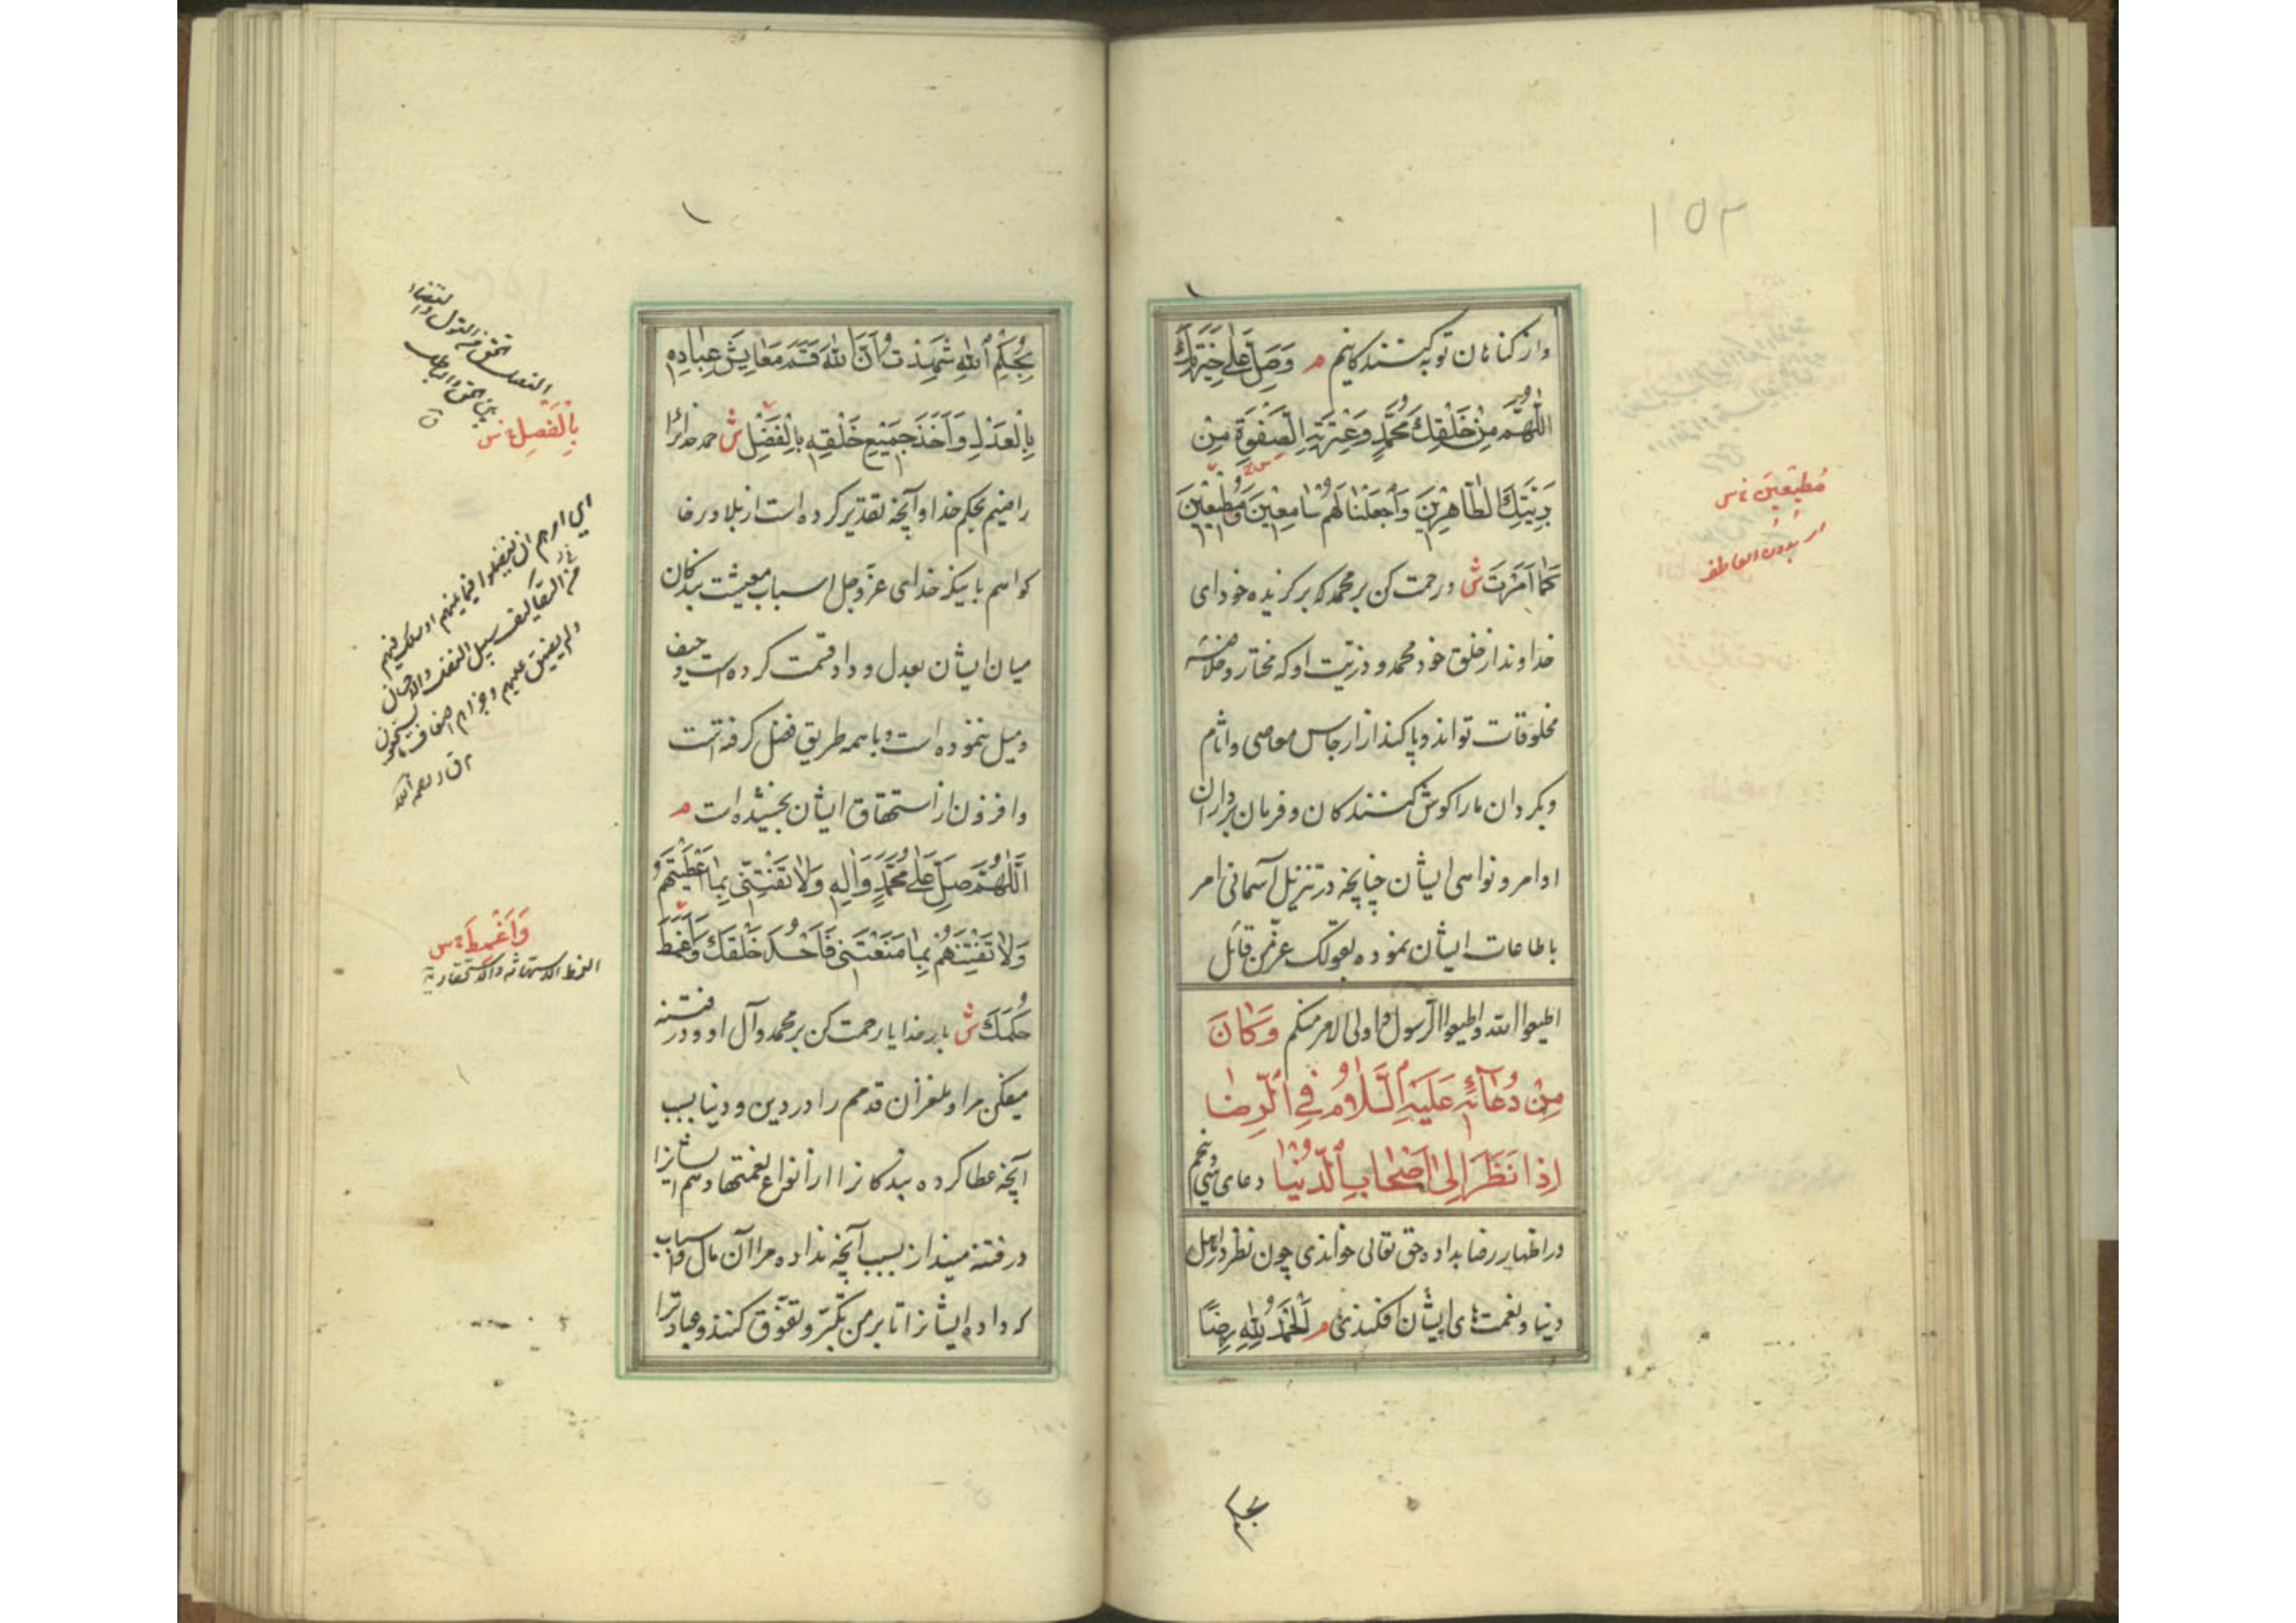 ١٥٣
واز کناهان توبه کنندکانیم م وَصَلِّ عَلی خِیَرَتِكَ
اللّٰهُمَّ مِنْ خَلْقِكَ مُحَمَّدٍ وَعِتْرَتِهِ الصَّفْوَةِ مِنْ
بَرِیَّتِكَ الطَّاهِرِینَ وَاجْعَلْنَا لَهُمْ سَامِعِینَ وَمُطِیعِینَ
كَمَا اَمَرْتَ ش ورحمت کن بر محمد که برکزیده خود ای
خداوند از خلق خود محمد و ذریّت او که مختار و خلاصهٔ
مخلوقات تواند و پاکند از ارجاس معاصی و آثام
وبکردان ما را کوش کنندکان و فرمان برداران
اوامر و نواهی ایشان چنانچه در تنزیل آسمانی امر
باطاعات ایشان نموده بقولک عزّ من قائل
اطیعوا الله واطیعوا الرسول واولی الامر منکم وَكَانَ
مِنْ دُعَائِهِ عَلَيْهِ السَّلَامُ فِي الرِّضَا
اِذَا نَظَرَ اِلٰی اَصْحَابِ الدُّنْیَا دعای سی وپنجم
در اظهار رضا بداده حق تعالی خواندی چون نظر در اهل
دنیا و نعمتهای ایشان افکندی م اَلْحَمْدُ لِلّٰهِ رِضًا
مُطِیعِینَ؛ س
بدون العاطف
بحکم
بِحُكْمِ اللّٰهِ شَهِدْتُ اَنَّ اللّٰهَ قَسَمَ مَعَایِشَ عِبَادِهِ
بِالْعَدْلِ وَاَخَذَ جَمِیعَ خَلْقِهِ بِالْفَضْلِ ش حمد خدائرا
راضیم بحکم خدا و آنچه تقدیر کرده است از بلا و رخا
کواهم باینکه خدای عزّوجل اسباب معیشت بندکان
میان ایشان بعدل و داد قسمت کرده است و حیف
ومیل ننموده است و با همه طریق فضل کرفته است
وافزون از استحقاق ایشان بخشیده است م
اَللّٰهُمَّ صَلِّ عَلٰی مُحَمَّدٍ وَآلِهِ وَلَا تَفْتِنِّی بِمَا اَعْطَیْتَهُمْ
وَلَا تَفْتِنْهُمْ بِمَا مَنَعْتَنِی فَاَحْسُدَ خَلْقَكَ وَاَغْمِطَ
حُكْمَكَ ش بار خدایا رحمت کن بر محمد و آل او و در فتنه
میفکن مرا و ملغزان قدمم را در دین و دنیا بسبب
آنچه عطا کرده بندکانرا از انواع نعمتها و هم ایشانرا
در فتنه مینداز بسبب آنچه نداده مرا آن مال واسباب
که داده ایشانرا تا بر من تکبّر و تفوّق کنند و عبادترا
الفصل من القول
بین الحق والباطل
ق
بِالْفَصْلِ؛ س
من التکالیف سبیل الفضل والاحسان
وَاَغْمِطَ؛ س
الغمط الاستهانة والاستحقار